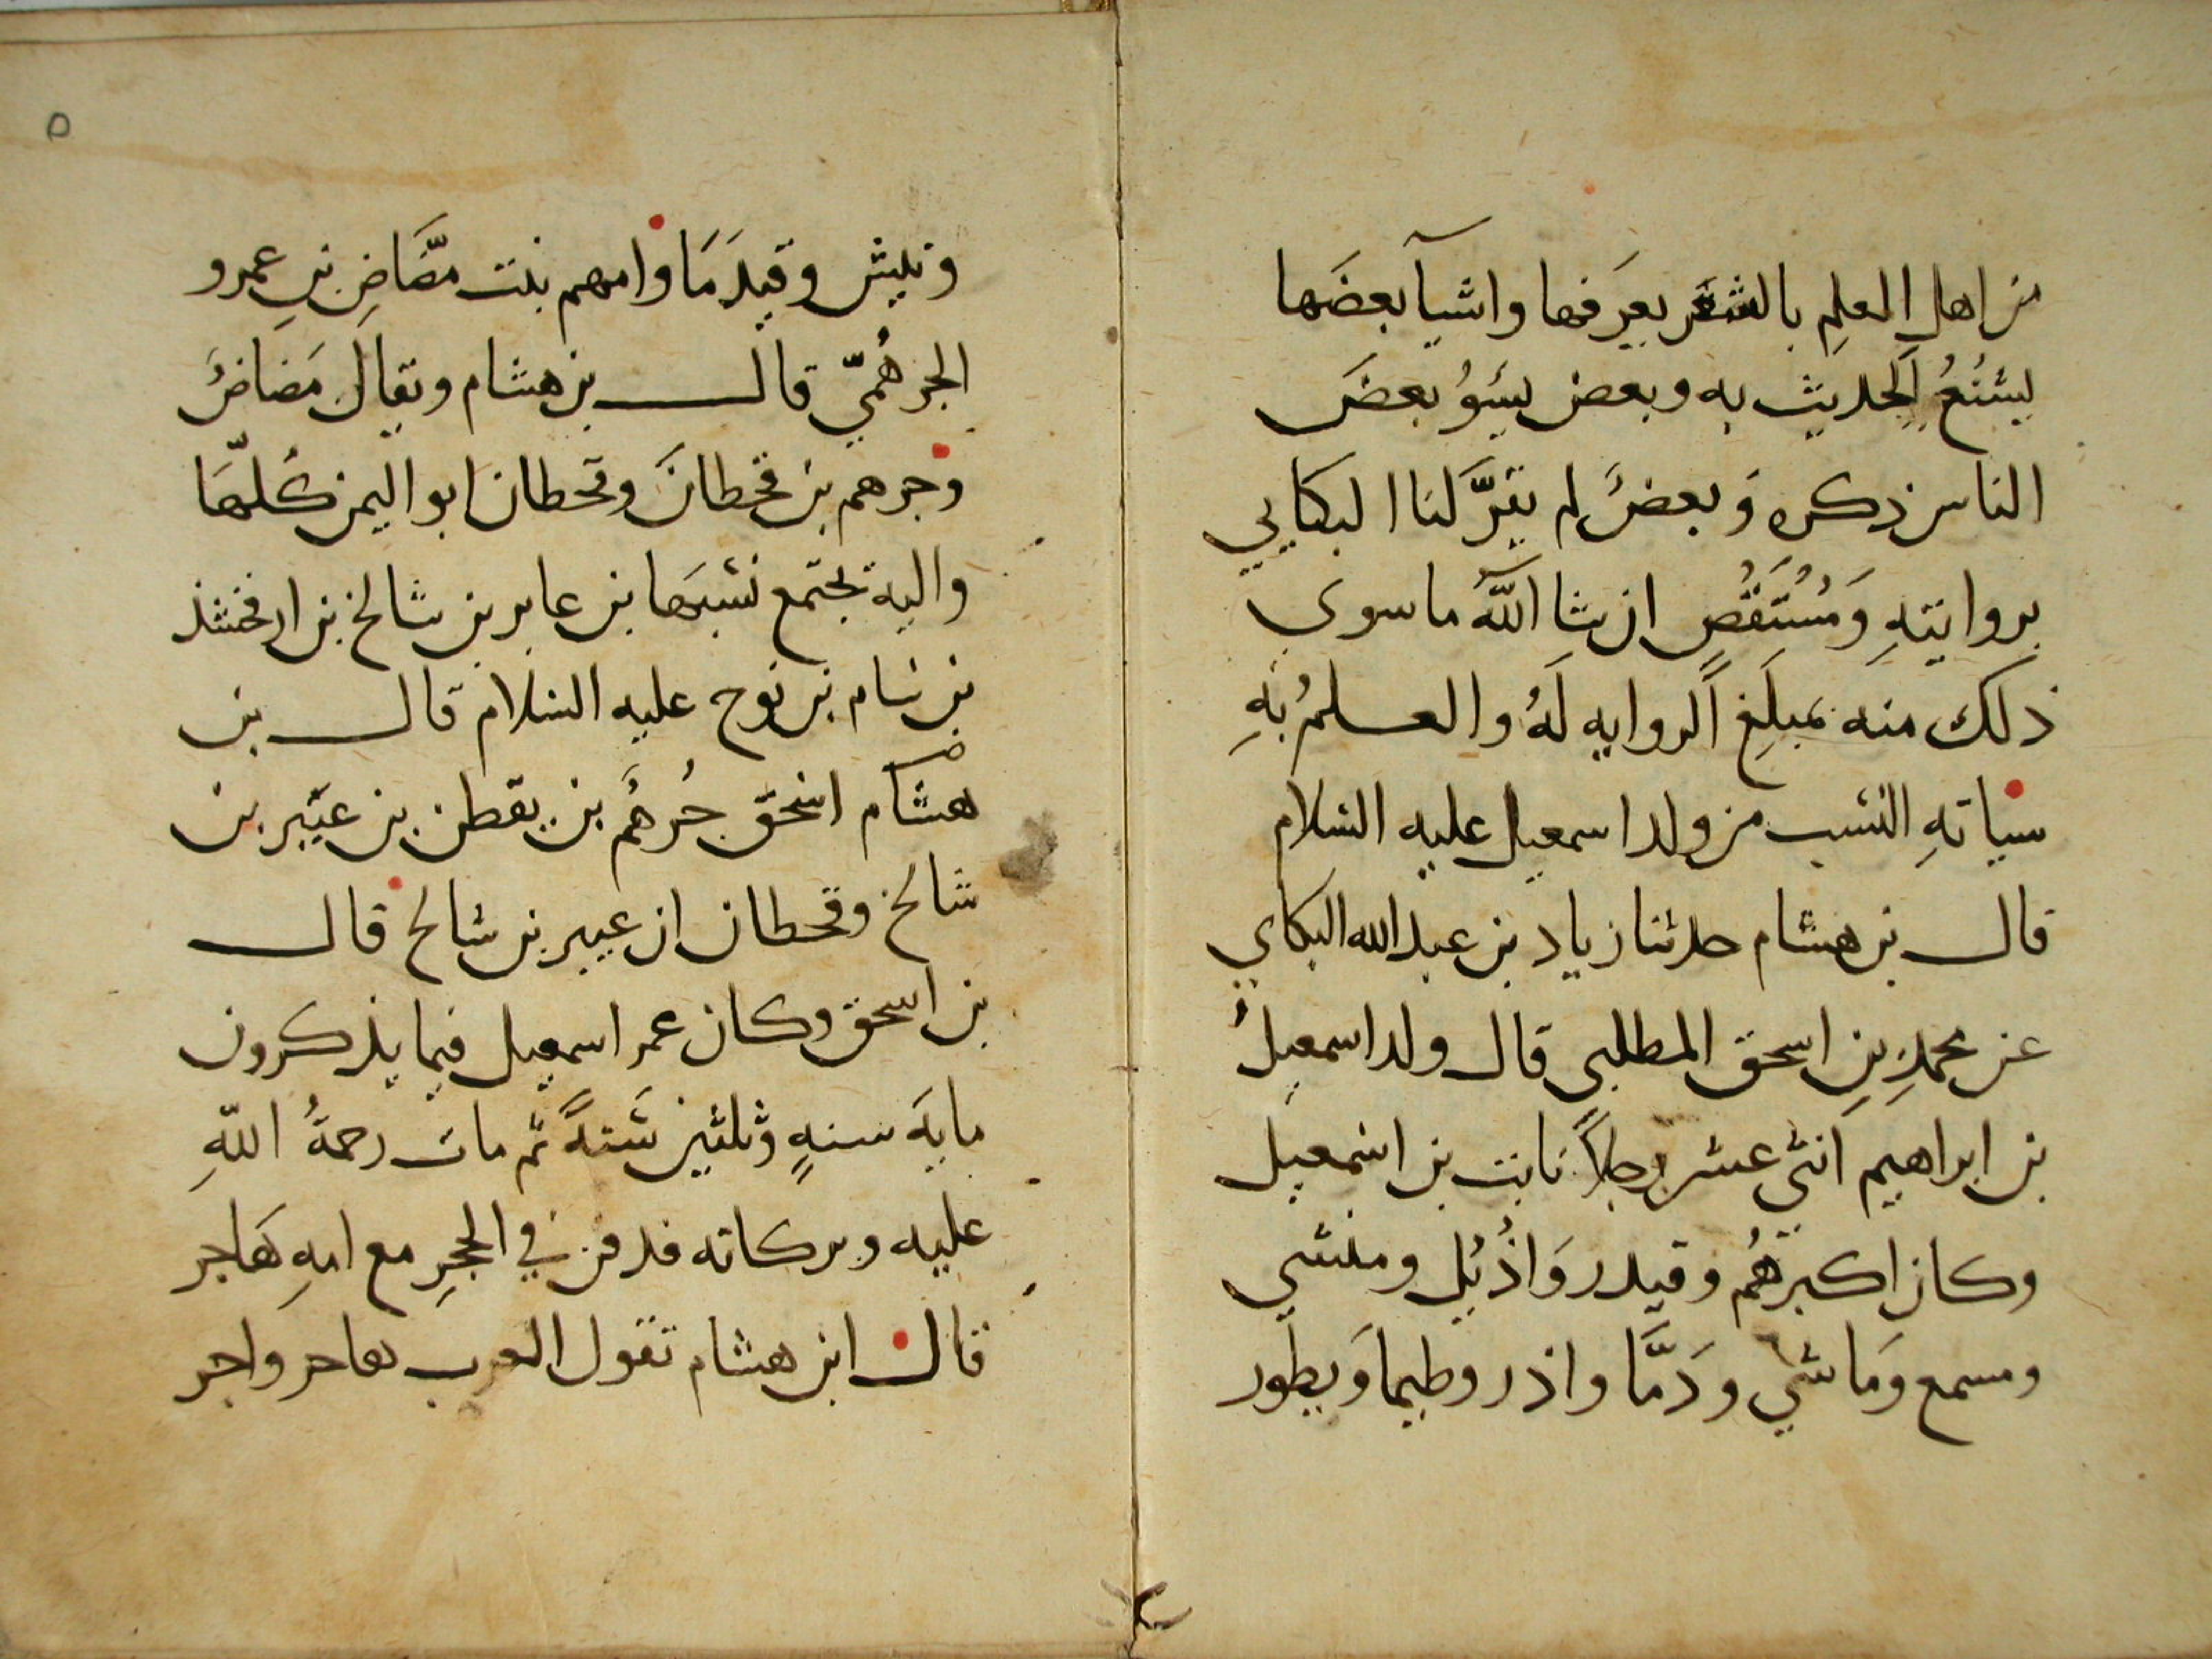 من اهل العلم بالشعر يعرفها واشيآ بعضها
يشنع الحديث به وبعض يسو بعض
الناس ذكره وبعض لم يقر لنا البكايي
بروايته ومستقص ان شا الله ما سوى
ذلك منه بمبلغ الروايه له والعلم به
سياقه النسب من ولد اسمعيل عليه السلام
قال بن هشام حدثنا زياد بن عبد الله البكاي
عن محمد بن اسحق المطلبي قال ولد اسمعيل
بن ابراهيم اثنى عشر رجلا نابت بن اسمعيل
وكان اكبرهم وقيدر واذبل ومنشي
ومسمع وماشي ودما واذر وطيما ويطور
ونبش وقيدما وامهم بنت مضاض بن عمرو
الجرهمي قال بن هشام ويقال مضاض
وجرهم بن قحطان وقحطان ابو اليمن كلها
واليه تجتمع نسبها بن عابر بن شالخ بن ارفخشذ
بن سام بن نوح عليه السلام قال بن
هشام اسحق جرهم بن يقطن بن عيبر بن
شالخ وقحطان ابن عيبر بن شالخ قال
بن اسحق وكان عمر اسمعيل فيما يذكرون
مايه سنه وثلثين سنة ثم مات رحمة الله
عليه وبركاته فدفن في الحجر مع امه هاجر
قال ابن هشام تقول العرب هاجر واجر
٥